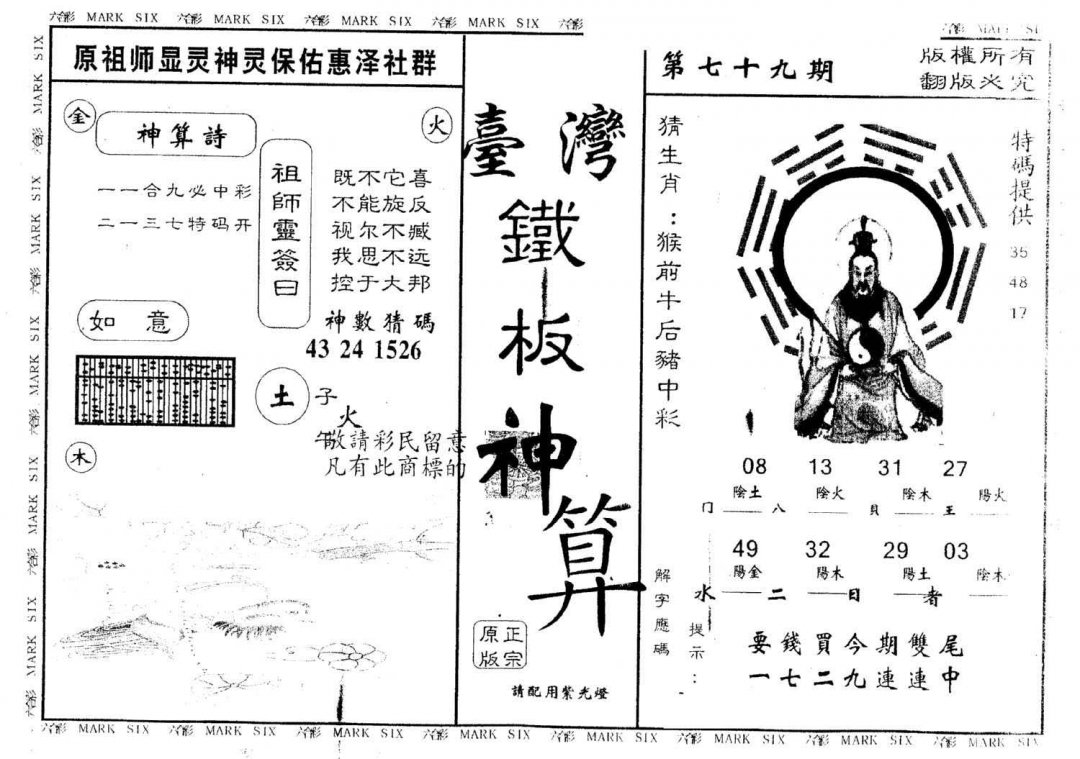 六彩 MARK SIX 六彩 MARK SIX 六彩 MARK SIX 六彩 MARK SIX 六彩
原祖师显灵神灵保佑惠泽社群
金
神算詩
火
一一合九必中彩
二一三七特码开
祖師靈簽曰
既不它喜
不能旋反
视尔不臧
我思不远
控于大邦
神數猜碼
43 24 1526
如意
土
子
火
午
敬請彩民留意
凡有此商標的
木
臺灣
鐵板神算
正宗
原版
請配用紫光燈
第七十九期
版權所有
翻版必究
猜生肖：猴前牛后豬中彩
特碼提供
35
48
17
08 13 31 27
陰土 陰火 陰木 陽火
门 八 貝 王
49 32 29 03
陽金 陽木 陽土 陰木
水 二 日 者
解字應碼
提示：
要錢買今期雙尾
一七二九連連中
六彩 MARK SIX 六彩 MARK SIX 六彩 MARK SIX 六彩 MARK SIX 六彩 MARK SIX 六彩 MARK SIX 六彩 MARK SIX 六彩 MARK SIX